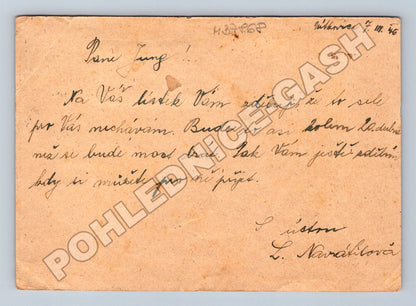 7. III. 46
Pane Jung!
Na Váš lístek Vám sděluji, že to sele
pro Vás nechávám. Bude to asi kolem 20. dubna
má se bude moct brát. Pak Vám ještě sdělím,
kdy si můžete pro ně přijet.
S úctou
L. Navrátilová
POHLEDNICE-GASH